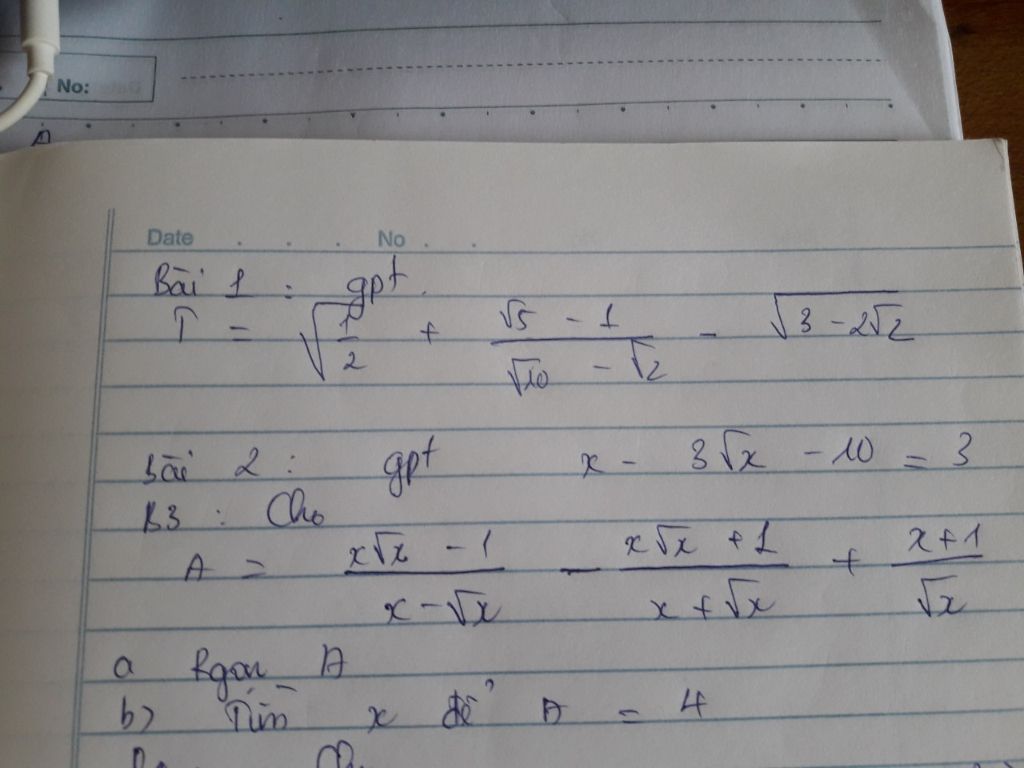 No:
A
Date . . . No . .
Bài 1 : gpt.
T = √(1/2) + (√5 - 1)/(√10 - √2) - √(3 - 2√2)
Bài 2 : gpt x - 3√x - 10 = 3
B3 : Cho
A = (x√x - 1)/(x - √x) - (x√x + 1)/(x + √x) + (x+1)/√x
a Rgọn A
b) Tìm x để A = 4